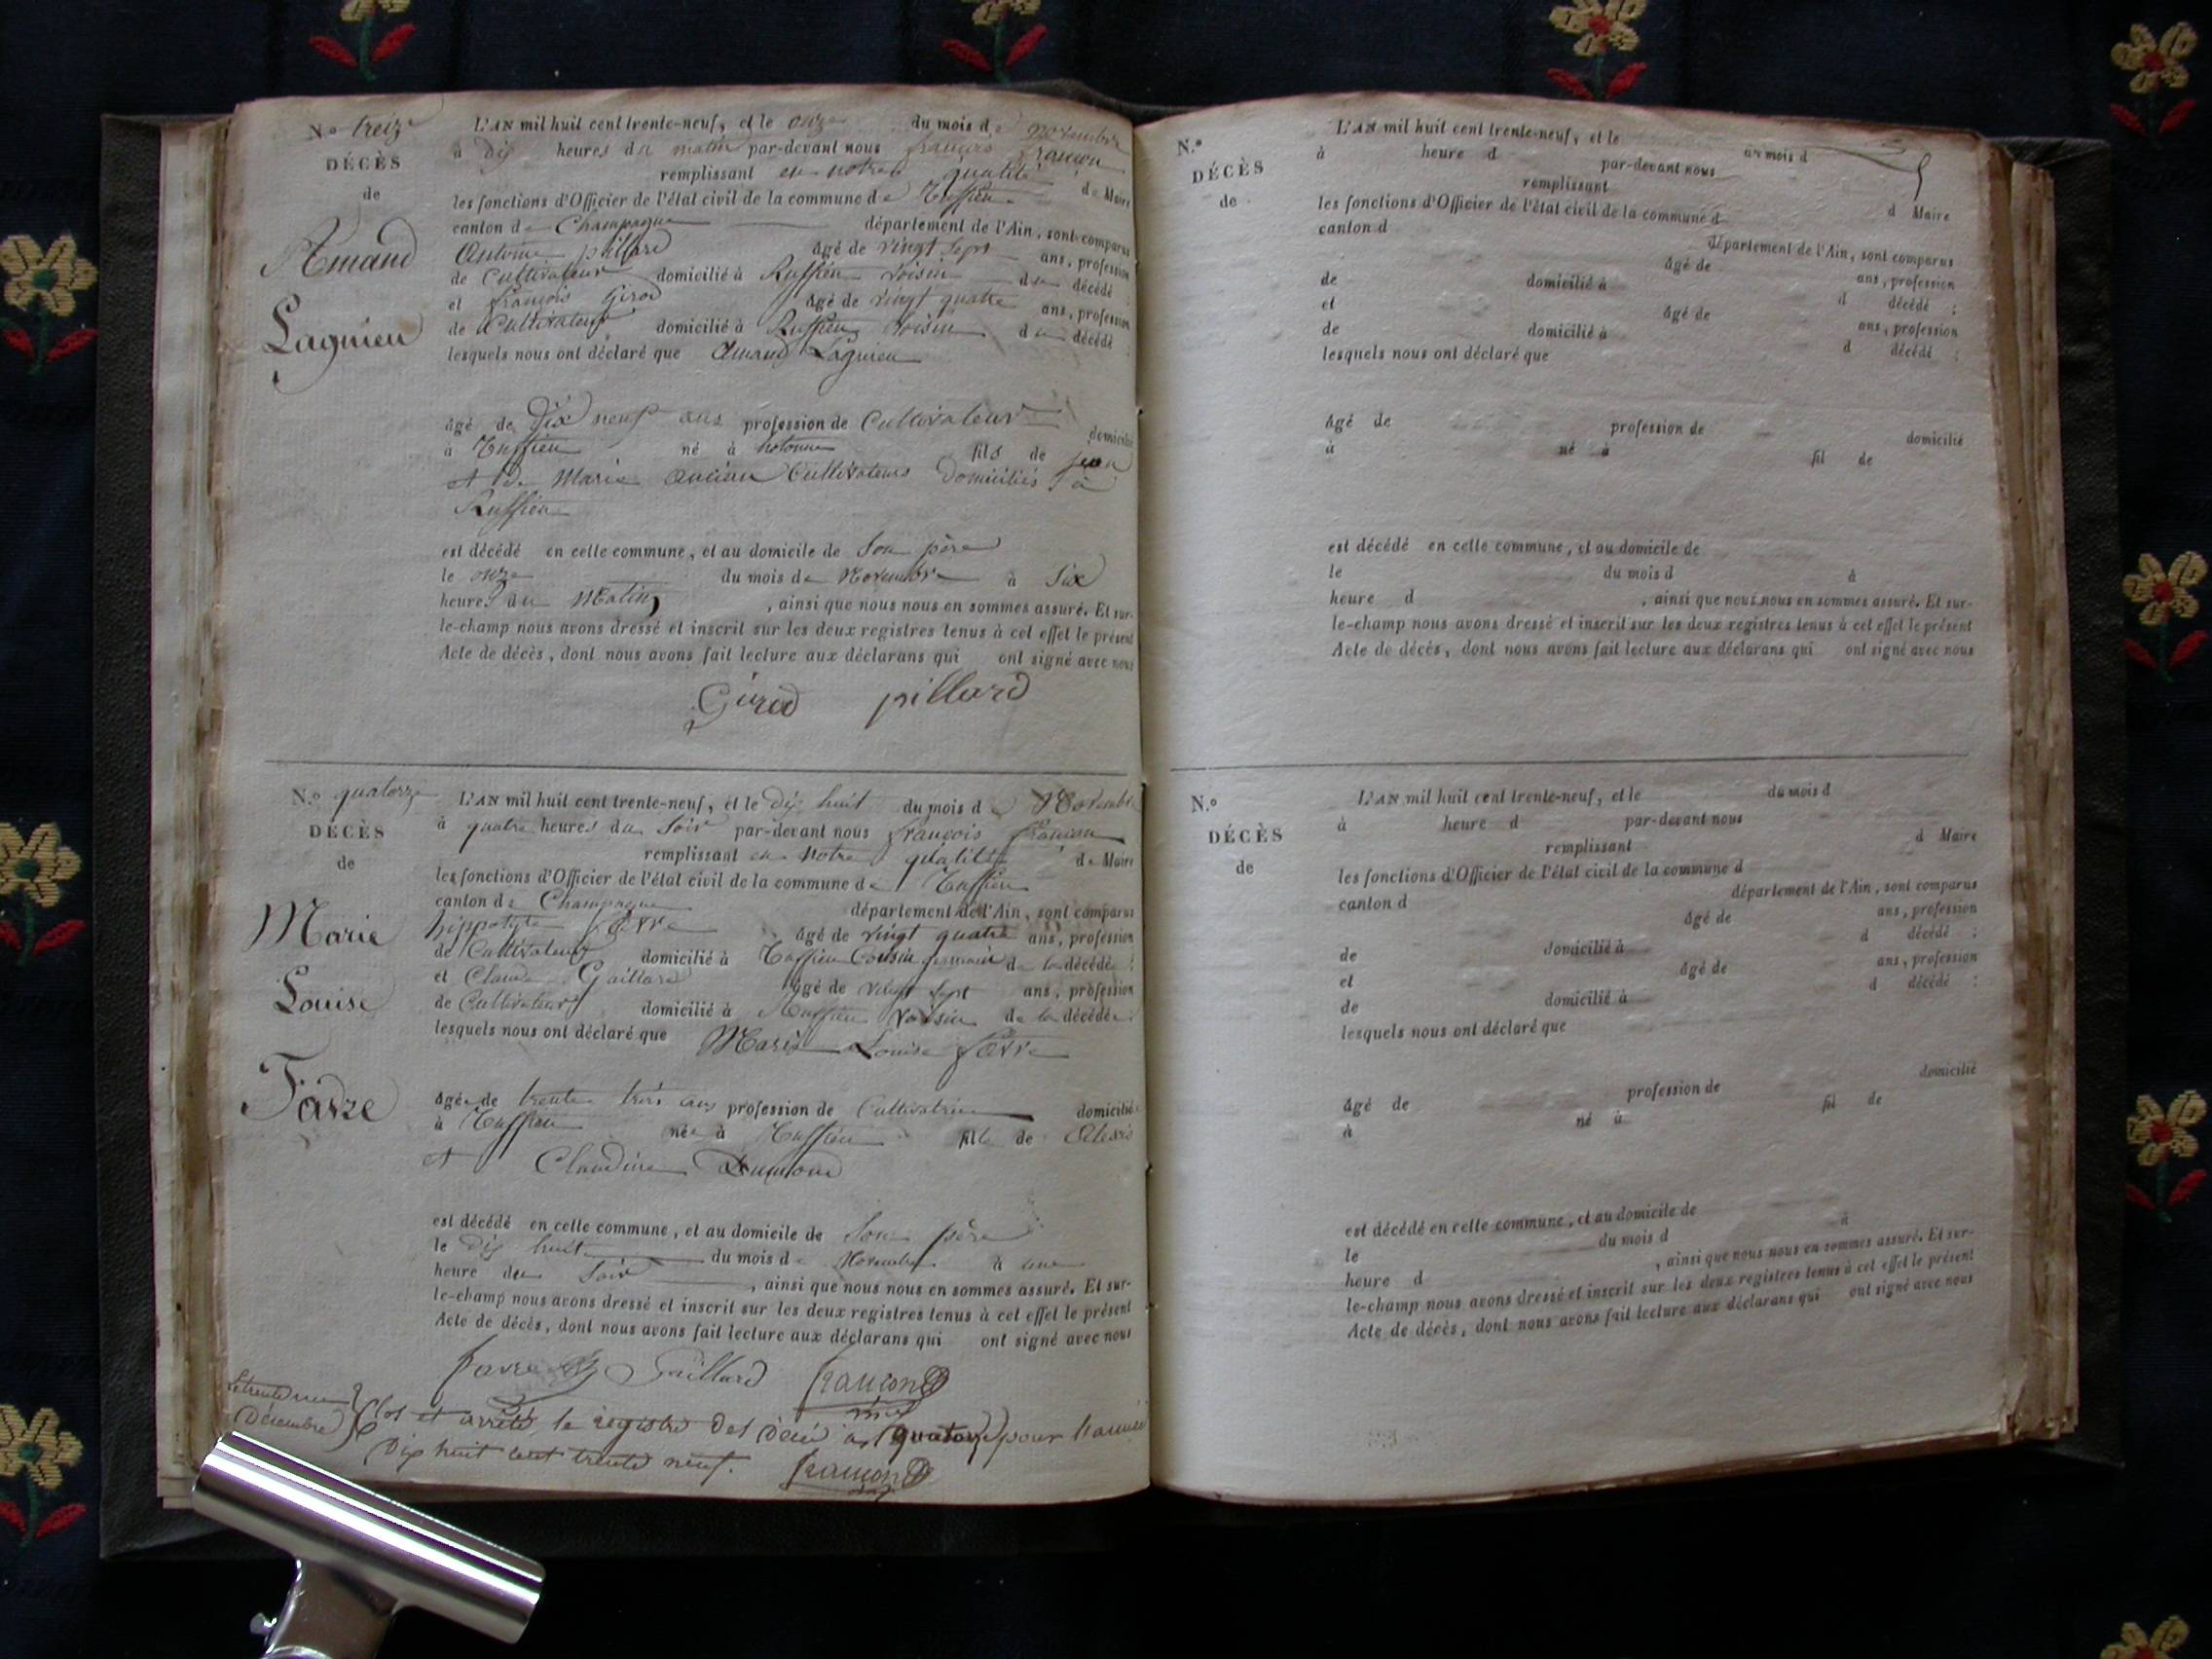 N.o treize
DÉCÈS
de
Amand
Lagnieu
L'AN mil huit cent trente-neuf, et le onze du mois de novembre
à dix heures du matin par-devant nous françois françon
remplissant en notre qualité de Maire
les fonctions d'Officier de l'état civil de la commune de Ruffieu
canton de Champagne département de l'Ain, sont comparus
Antoine pillard âgé de vingt sept ans, profession
de Cultivateur domicilié à Ruffieu voisin du décédé ;
et françois Girod âgé de vingt quatre ans, profession
de Cultivateur domicilié à Ruffieu voisin du décédé ;
lesquels nous ont déclaré que Amand Lagnieu
âgé de Dix neuf ans profession de Cultivateur domicilié
à Ruffieu né à hotonne fils de jean
et de Marie Cultivateurs Domiciliés à
Ruffieu
est décédé en cette commune, et au domicile de Son père
le onze du mois de Novembre à Six
heures du Matin, ainsi que nous nous en sommes assuré. Et sur-
le-champ nous avons dressé et inscrit sur les deux registres tenus à cet effet le présent
Acte de décès, dont nous avons fait lecture aux déclarans qui ont signé avec nous
Girod pillard
N.o quatorze
DÉCÈS
de
Marie
Louise
Favre
L'AN mil huit cent trente-neuf, et le dix huit du mois de Novembre
à quatre heures du Soir par-devant nous françois françon
remplissant en notre qualité de Maire
les fonctions d'Officier de l'état civil de la commune de Ruffieu
canton de Champagne département de l'Ain, sont comparus
hippolyte favre âgé de vingt quatre ans, profession
de Cultivateur domicilié à Ruffieu Cousin germain de la décédée ;
et Claude Gaillard âgé de vingt sept ans, profession
de Cultivateur domicilié à Ruffieu voisin de la décédée ;
lesquels nous ont déclaré que Marie Louise favre
âgée de trente trois ans profession de Cultivatrice domiciliée
à Ruffieu née à Ruffieu fille de Alexis
et Claudine Dumond
est décédé en cette commune, et au domicile de Son père
le dix huit du mois de Novembre à une
heure du Soir, ainsi que nous nous en sommes assuré. Et sur-
le-champ nous avons dressé et inscrit sur les deux registres tenus à cet effet le présent
Acte de décès, dont nous avons fait lecture aux déclarans qui ont signé avec nous
favre Gaillard françon
Le trente un
Décembre
Clos et arrêté le registre des décès à quatorze pour l'année
Dix huit cent trente neuf. françon
N.o
DÉCÈS
de
L'AN mil huit cent trente-neuf, et le du mois d
à heure d par-devant nous
remplissant d Maire
les fonctions d'Officier de l'état civil de la commune d
canton d département de l'Ain, sont comparus
âgé de ans, profession
de domicilié à d décédé ;
et âgé de ans, profession
de domicilié à d décédé ;
lesquels nous ont déclaré que
âgé de profession de domicilié
à né à fil de
est décédé en cette commune, et au domicile de
le du mois d à
heure d , ainsi que nous nous en sommes assuré. Et sur-
le-champ nous avons dressé et inscrit sur les deux registres tenus à cet effet le présent
Acte de décès, dont nous avons fait lecture aux déclarans qui ont signé avec nous
N.o
DÉCÈS
de
L'AN mil huit cent trente-neuf, et le du mois d
à heure d par-devant nous
remplissant d Maire
les fonctions d'Officier de l'état civil de la commune d
canton d département de l'Ain, sont comparus
âgé de ans, profession
de domicilié à d décédé ;
et âgé de ans, profession
de domicilié à d décédé ;
lesquels nous ont déclaré que
âgé de profession de domicilié
à né à fil de
est décédé en cette commune, et au domicile de
le du mois d à
heure d , ainsi que nous nous en sommes assuré. Et sur-
le-champ nous avons dressé et inscrit sur les deux registres tenus à cet effet le présent
Acte de décès, dont nous avons fait lecture aux déclarans qui ont signé avec nous